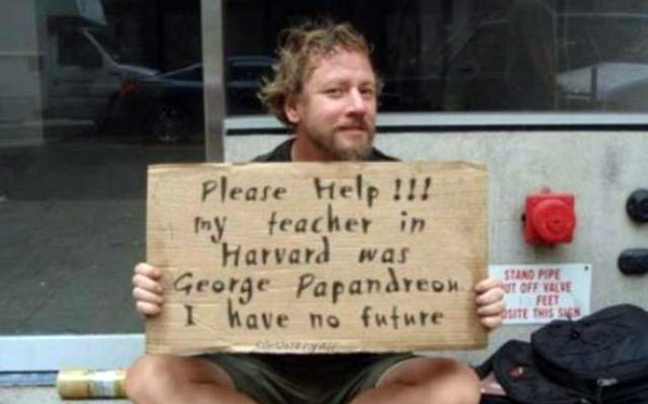 Please Help !!!
my teacher in
Harvard was
George Papandreou
I have no future
STAND PIPE
UT OFF VALVE
FEET
OSITE THIS SIGN